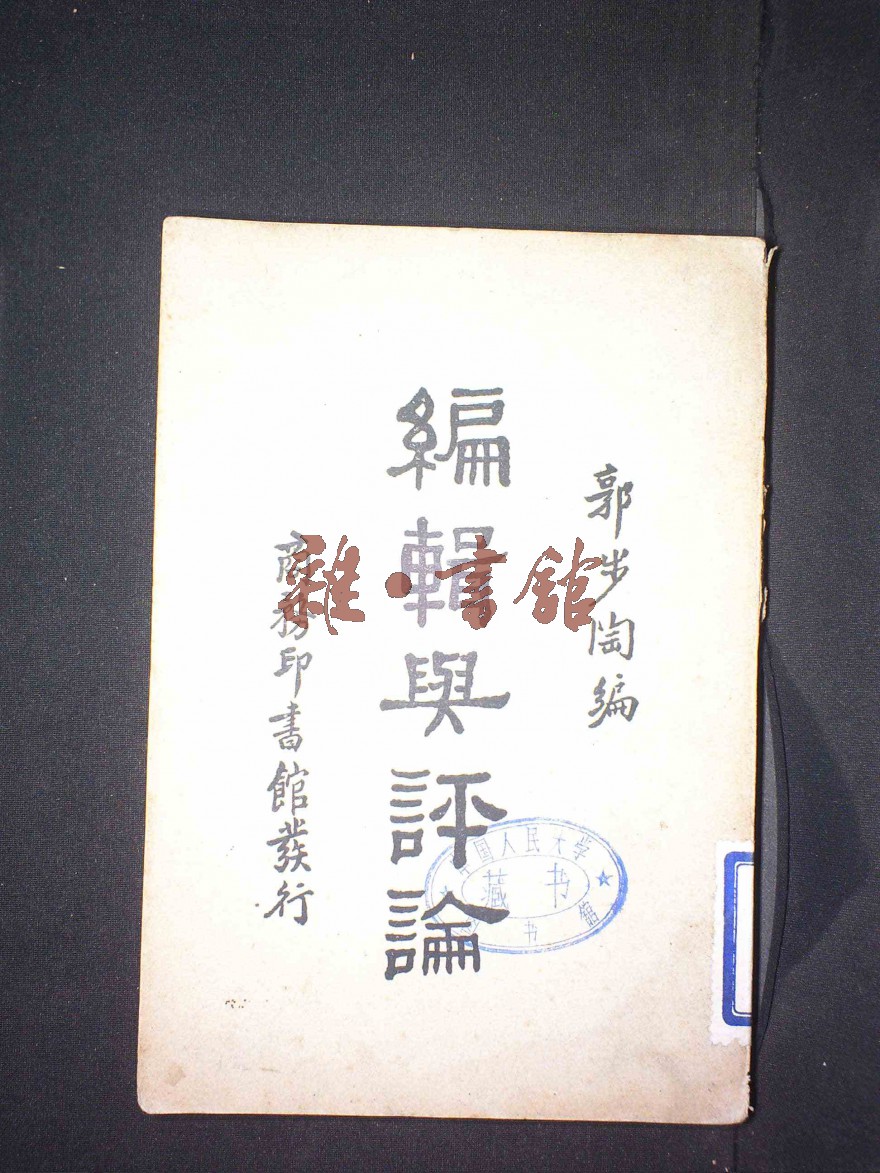 郭步陶編
編輯與評論
商務印書館發行
雜·書館
中国人民大学
图书馆
藏书